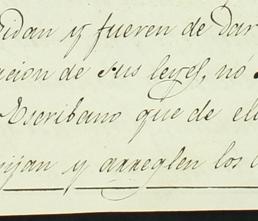 eidan y fueren de dar
acion de sus leyes, nó
Escribano que de ell
ijan y arreglen los